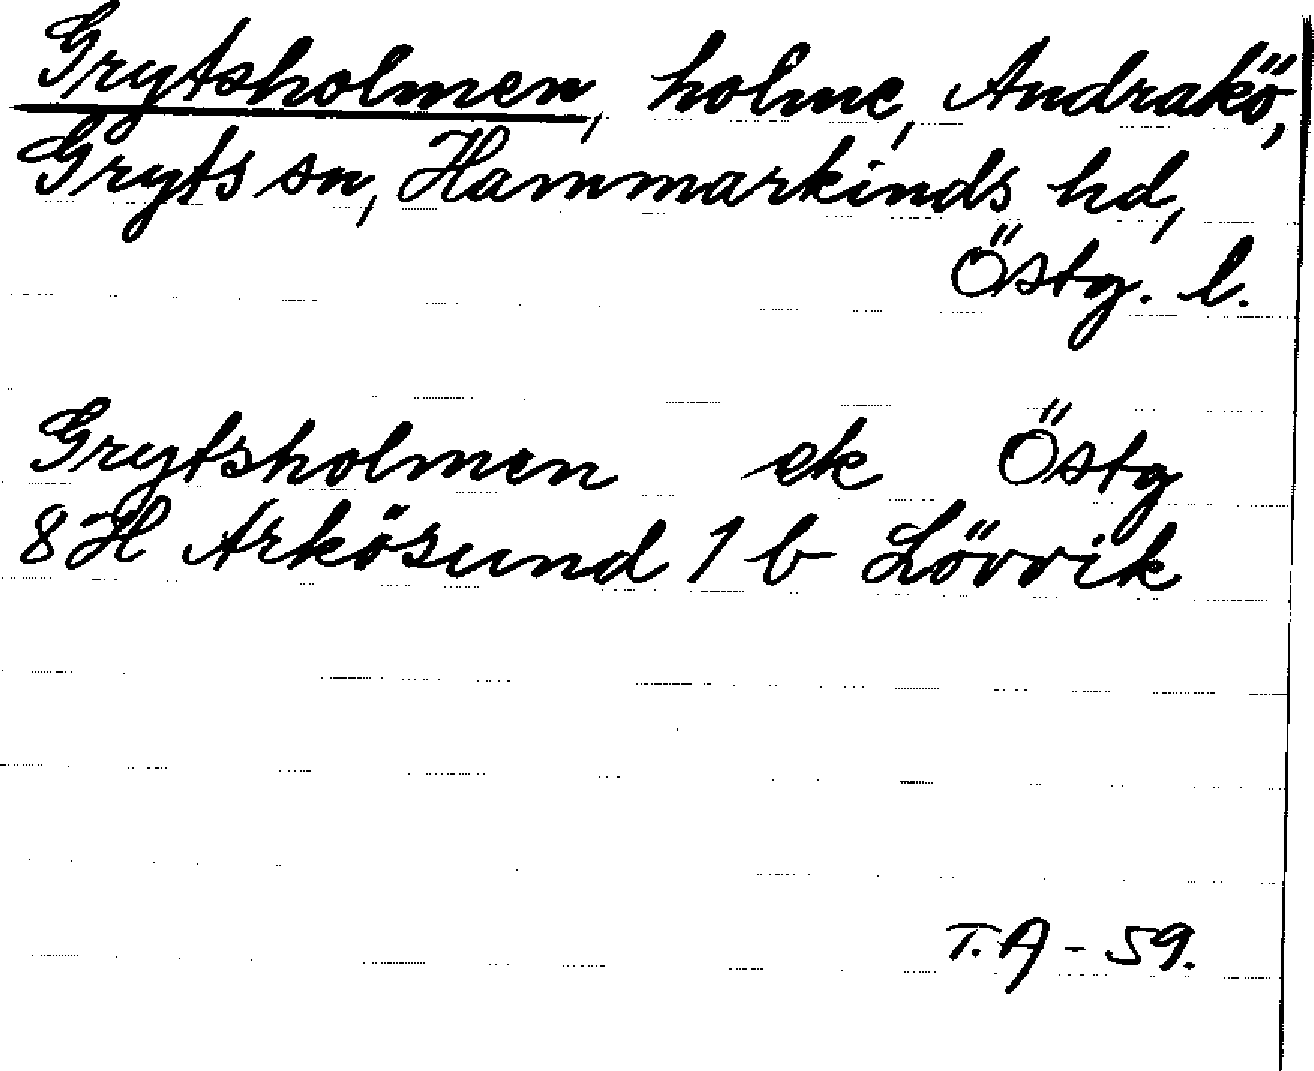 Grytsholmen, holme, Andrakö,
Gryts sn, Hammarkinds hd,
Östg. l.
Grytsholmen ek Östg
8H Arkösund 1 b Lövvik
T.A - 59.